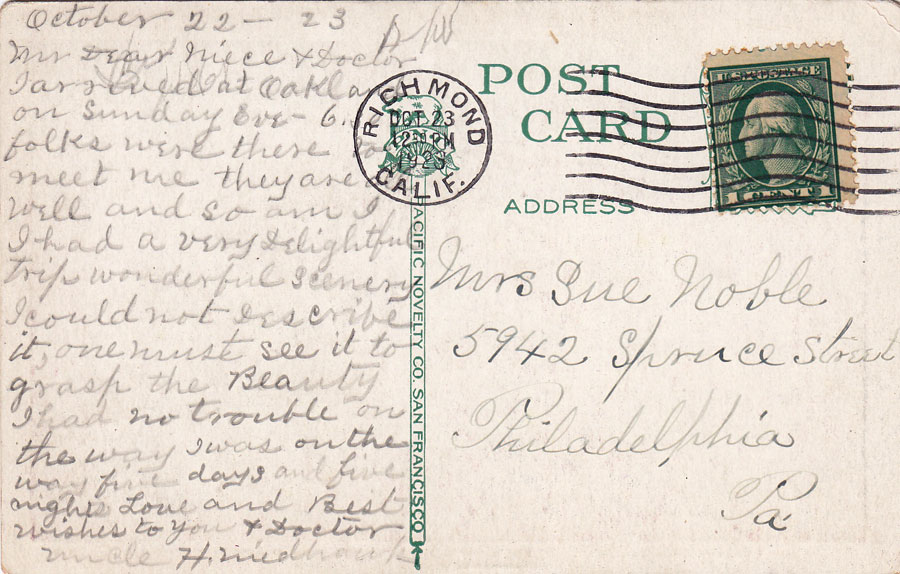 October 22 - 23
My Dear Niece & Doctor
I arrived at Oakland
on Sunday Eve - 6..
folks were there to
meet me they are
well and so am I
I had a very Delightful
trip wonderful scenery
I could not Describe
it, one must see it to
grasp the Beauty
I had no trouble on
the way I was on the
way five days and five
nights Love and Best
wishes to you & Doctor
uncle H.
POST
CARD
ADDRESS
RICHMOND
OCT 23
12 PM
1923
CALIF.
U.S. POSTAGE
1 CENT 1
PACIFIC NOVELTY CO. SAN FRANCISCO
Mrs Sue Noble
5942 Spruce Street
Philadelphia
Pa